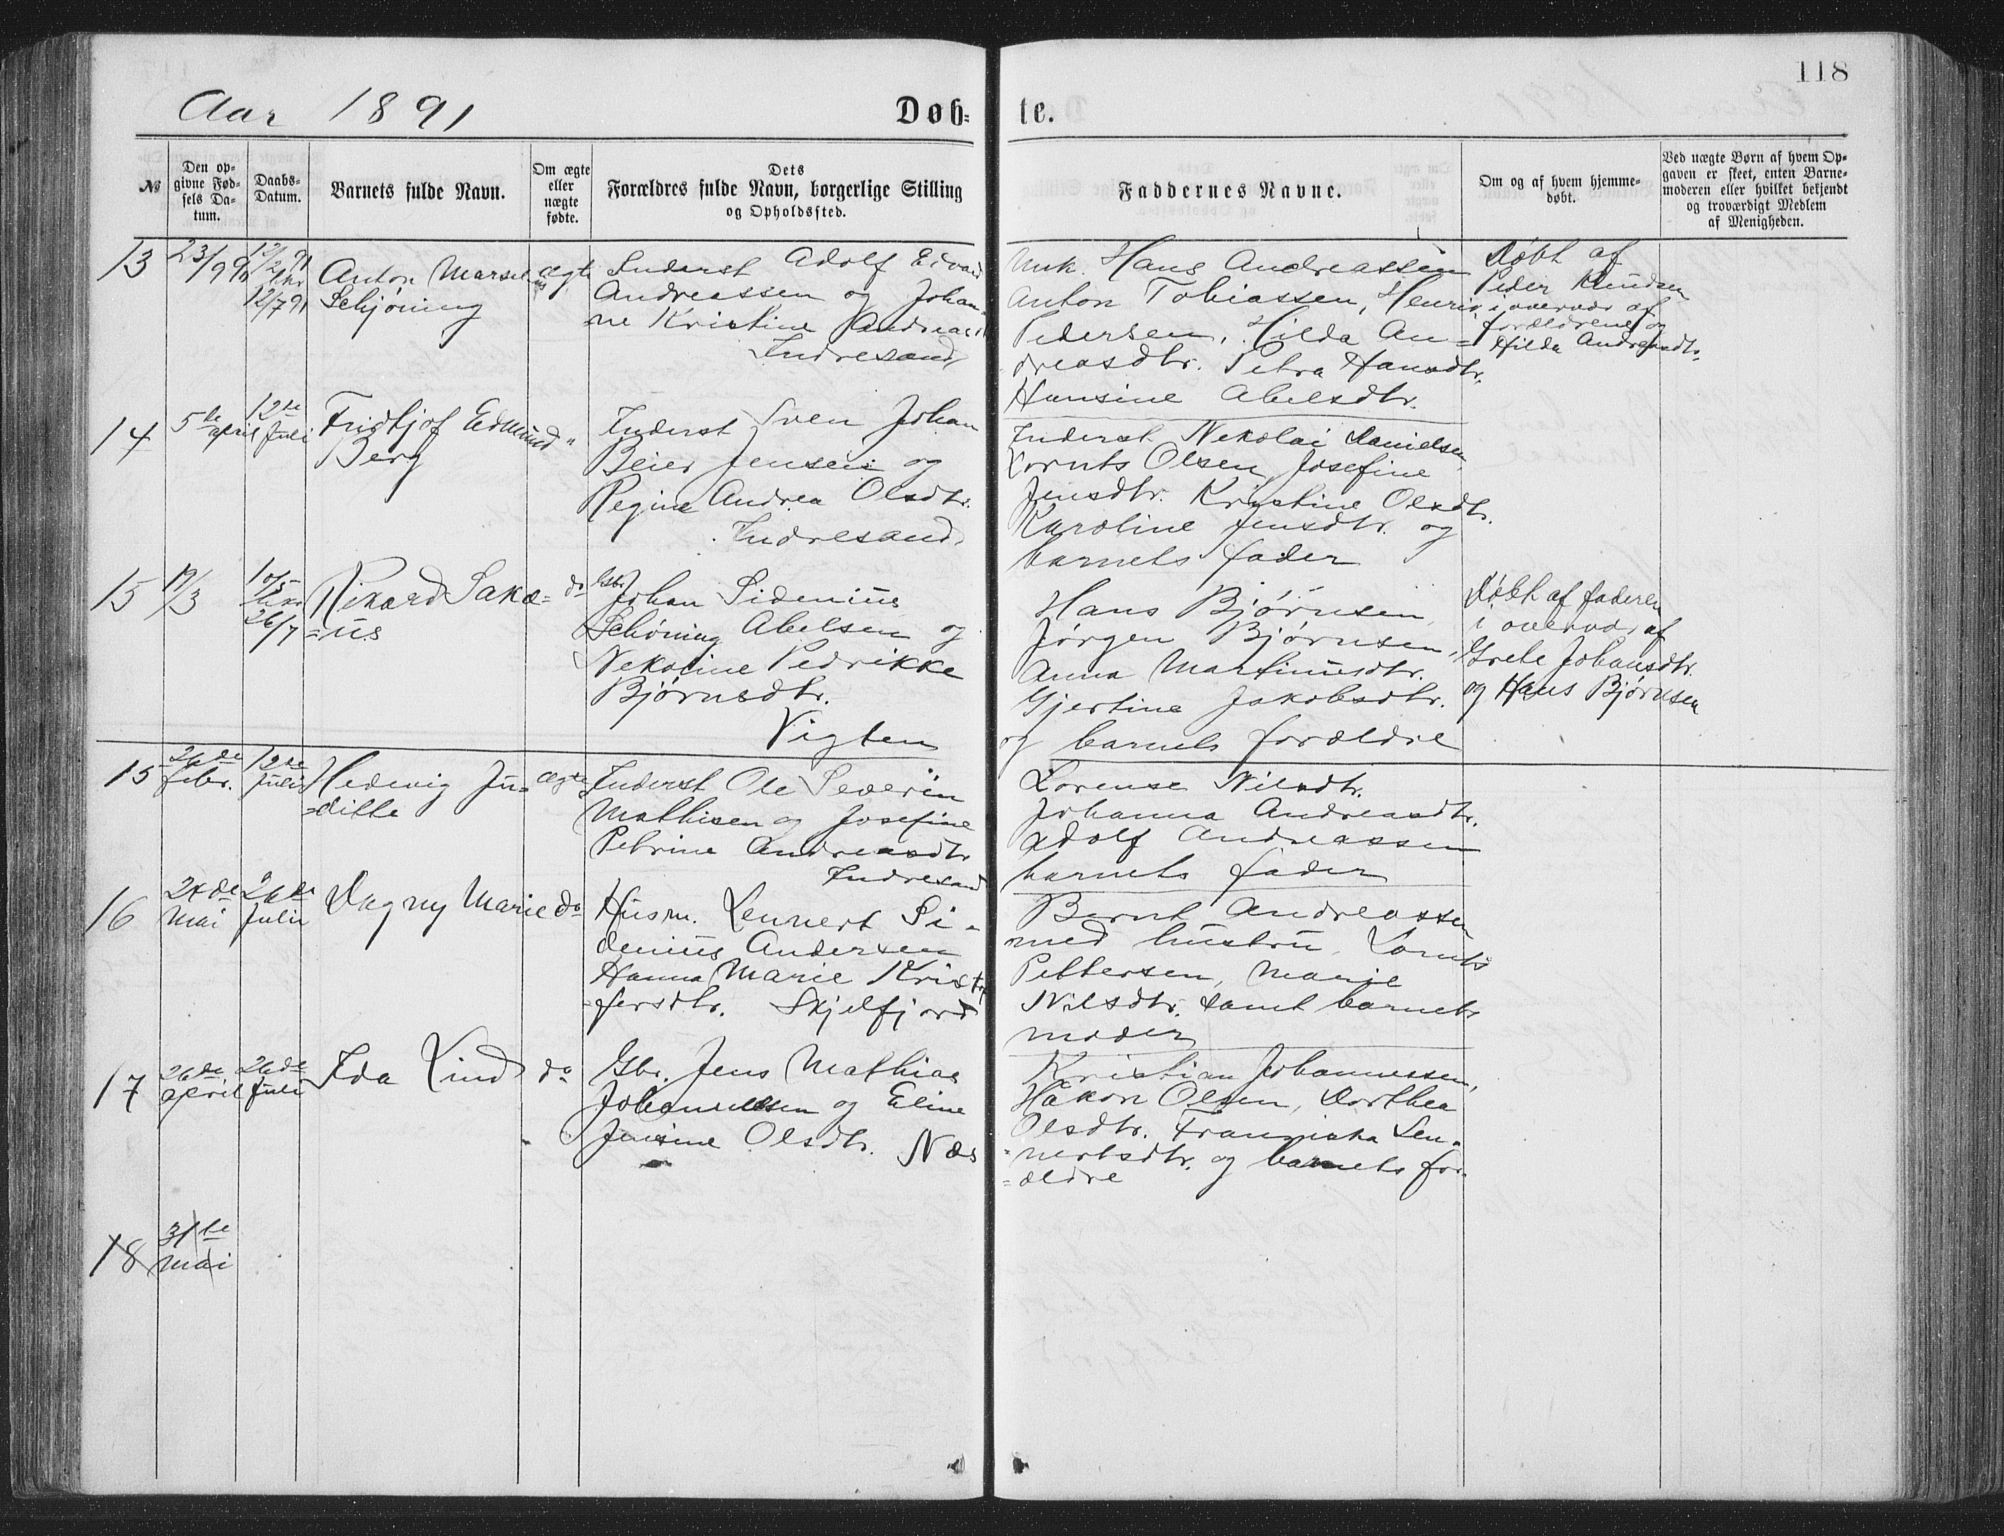 118
Aar 1891
Døb=
te.
№
Den op-
givne Fød-
sels Da-
tum.
Daabs-
Datum.
Barnets fulde Navn.
Om ægte
eller
uægte
fødte.
Dets
Forældres fulde Navn, borgerlige Stilling
og Opholdssted.
Faddernes Navne.
Om og af hvem hjemme-
døbt.
Ved uægte Børn af hvem Op-
gaven er skeet, enten Barne-
moderen eller hvilket bekjendt
og troværdigt Medlem
af Menigheden.
13
23/9 90
12/2 91
12/7 91
Anton Marsel
Schjøning
ægte
Inderst Adolf Edvard
Andreassen og Johan-
ne Kristine Andreasd
Indresand
Unk. Hans Andreassen
Anton Tobiassen, Henrik
Pedersen, Hilda An-
dreasdtr. Petra Hansdtr.
Hansine Abelsdtr.
Døbt af
Peder Knudsen
i overvær af
forældrene og
Hilda Andreasdtr.
14
5te april
12te Juli
Fridtjof Edmund
Berg
"
Inderst Sven Johan
Beier Jensen og
Regine Andrea Olsdtr.
Indresand
Inderst Nekolai Danielsen,
Lornts Olsen, Josefine
Jensdtr. Kristine Olsdtr.
Karoline Jensdtr. og
barnets fader
15
19/3
10/5
26/7
Rikard Sakæ=
=us
do
Gbr. Johan Sidenius
Schøning Abelsen og
Nekoline Pedrikke
Bjørnsdtr.
Vigten
Hans Bjørnsen,
Jørgen Bjørnsen,
Anna Martinusdtr.
Gjertine Jakobsdtr.
og barnets forældre
Døbt af faderen
i overvær af
Grete Johansdtr.
og Hans Bjørnsen
15
26de febr.
12te Juli
Hedevig Ju=
=ditte
ægte
Inderst Ole Severin
Mathisen og Josefine
Petrine Andreasdtr
Indresand
Lorense Nilsdtr.
Johanna Andreasdtr.
Adolf Andreassen
barnets fader
16
24de Mai
26de Juli
Dagny Marie
do
Husm. Lennert Si-
denius Andersen
Hanna Marie Krist
=fersdtr. Skjelfjord
Bernt Andreassen
med hustru, Lornts
Pettersen, Marie
Nilsdtr. samt barnets
moder
17
26de april
26de Juli
Ida Lind
do
Gbr. Jens Mathias
Johannessen og Eline
Jensine Olsdtr. Næs
Kristian Johannessen,
Håkon Olsen, Dorthea
Olsdtr. Franziska Len-
=nertsdtr. og barnets for-
=ældre
18
31te
Mai